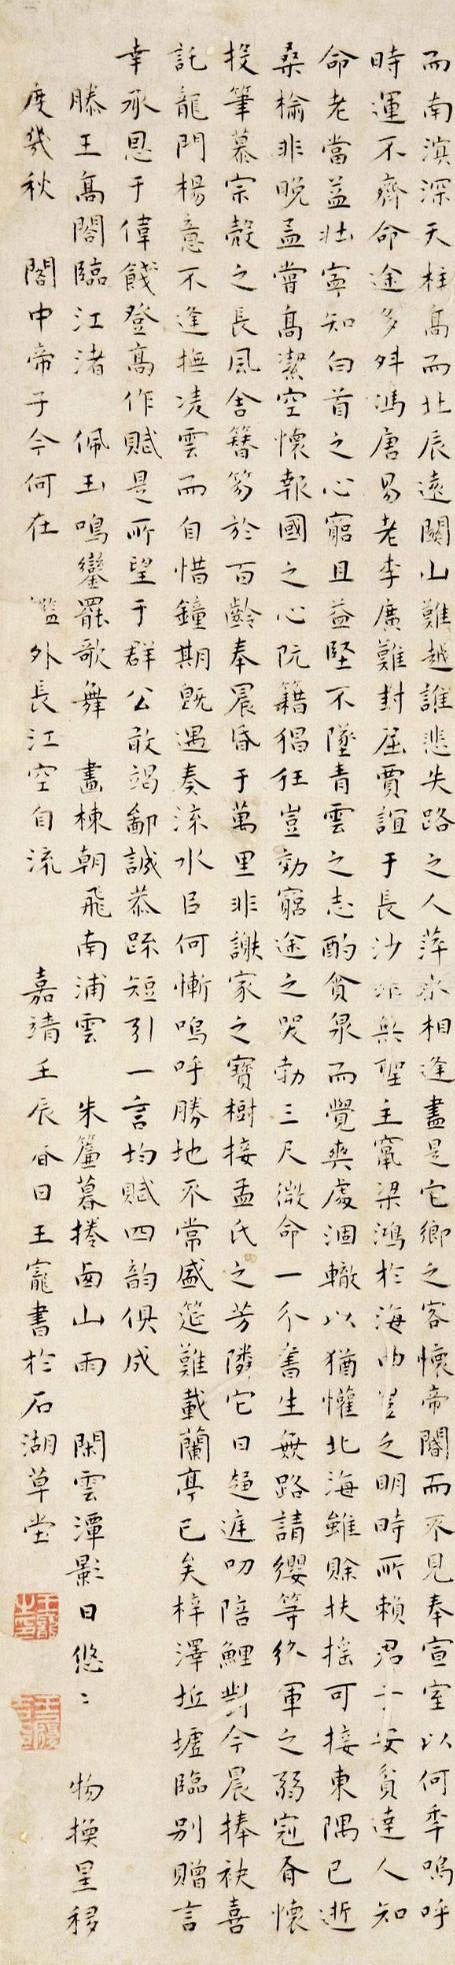 而南溟深天柱高而北辰遠關山難越誰悲失路之人萍水相逢盡是它鄉之客懷帝閽而不見奉宣室以何年嗚呼
時運不齊命途多舛馮唐易老李廣難封屈賈誼于長沙非無聖主竄梁鴻於海曲豈乏明時所賴君子安貧達人知
命老當益壯寧知白首之心窮且益堅不墜青雲之志酌貪泉而覺爽處涸轍以猶懽北海雖賒扶搖可接東隅已逝
桑榆非晚孟嘗高潔空懷報國之心阮籍猖狂豈効窮途之哭勃三尺微命一介書生無路請纓等終軍之弱冠有懷
投筆慕宗慤之長風舍簪笏於百齡奉晨昏于萬里非謝家之寶樹接孟氏之芳隣它日趨庭叨陪鯉對今晨捧袂喜
託龍門楊意不逢撫凌雲而自惜鐘期既遇奏流水以何慚嗚呼勝地不常盛筵難載蘭亭已矣梓澤坵墟臨別贈言
幸承恩于偉餞登高作賦是所望于群公敢竭鄙誠恭疏短引一言均賦四韵俱成
滕王高閣臨江渚 佩玉鳴鑾罷歌舞 畫棟朝飛南浦雲 朱簾暮捲西山雨 閑雲潭影日悠〻 物換星移
度幾秋 閣中帝子今何在 檻外長江空自流 嘉靖壬辰春日王寵書於石湖草堂